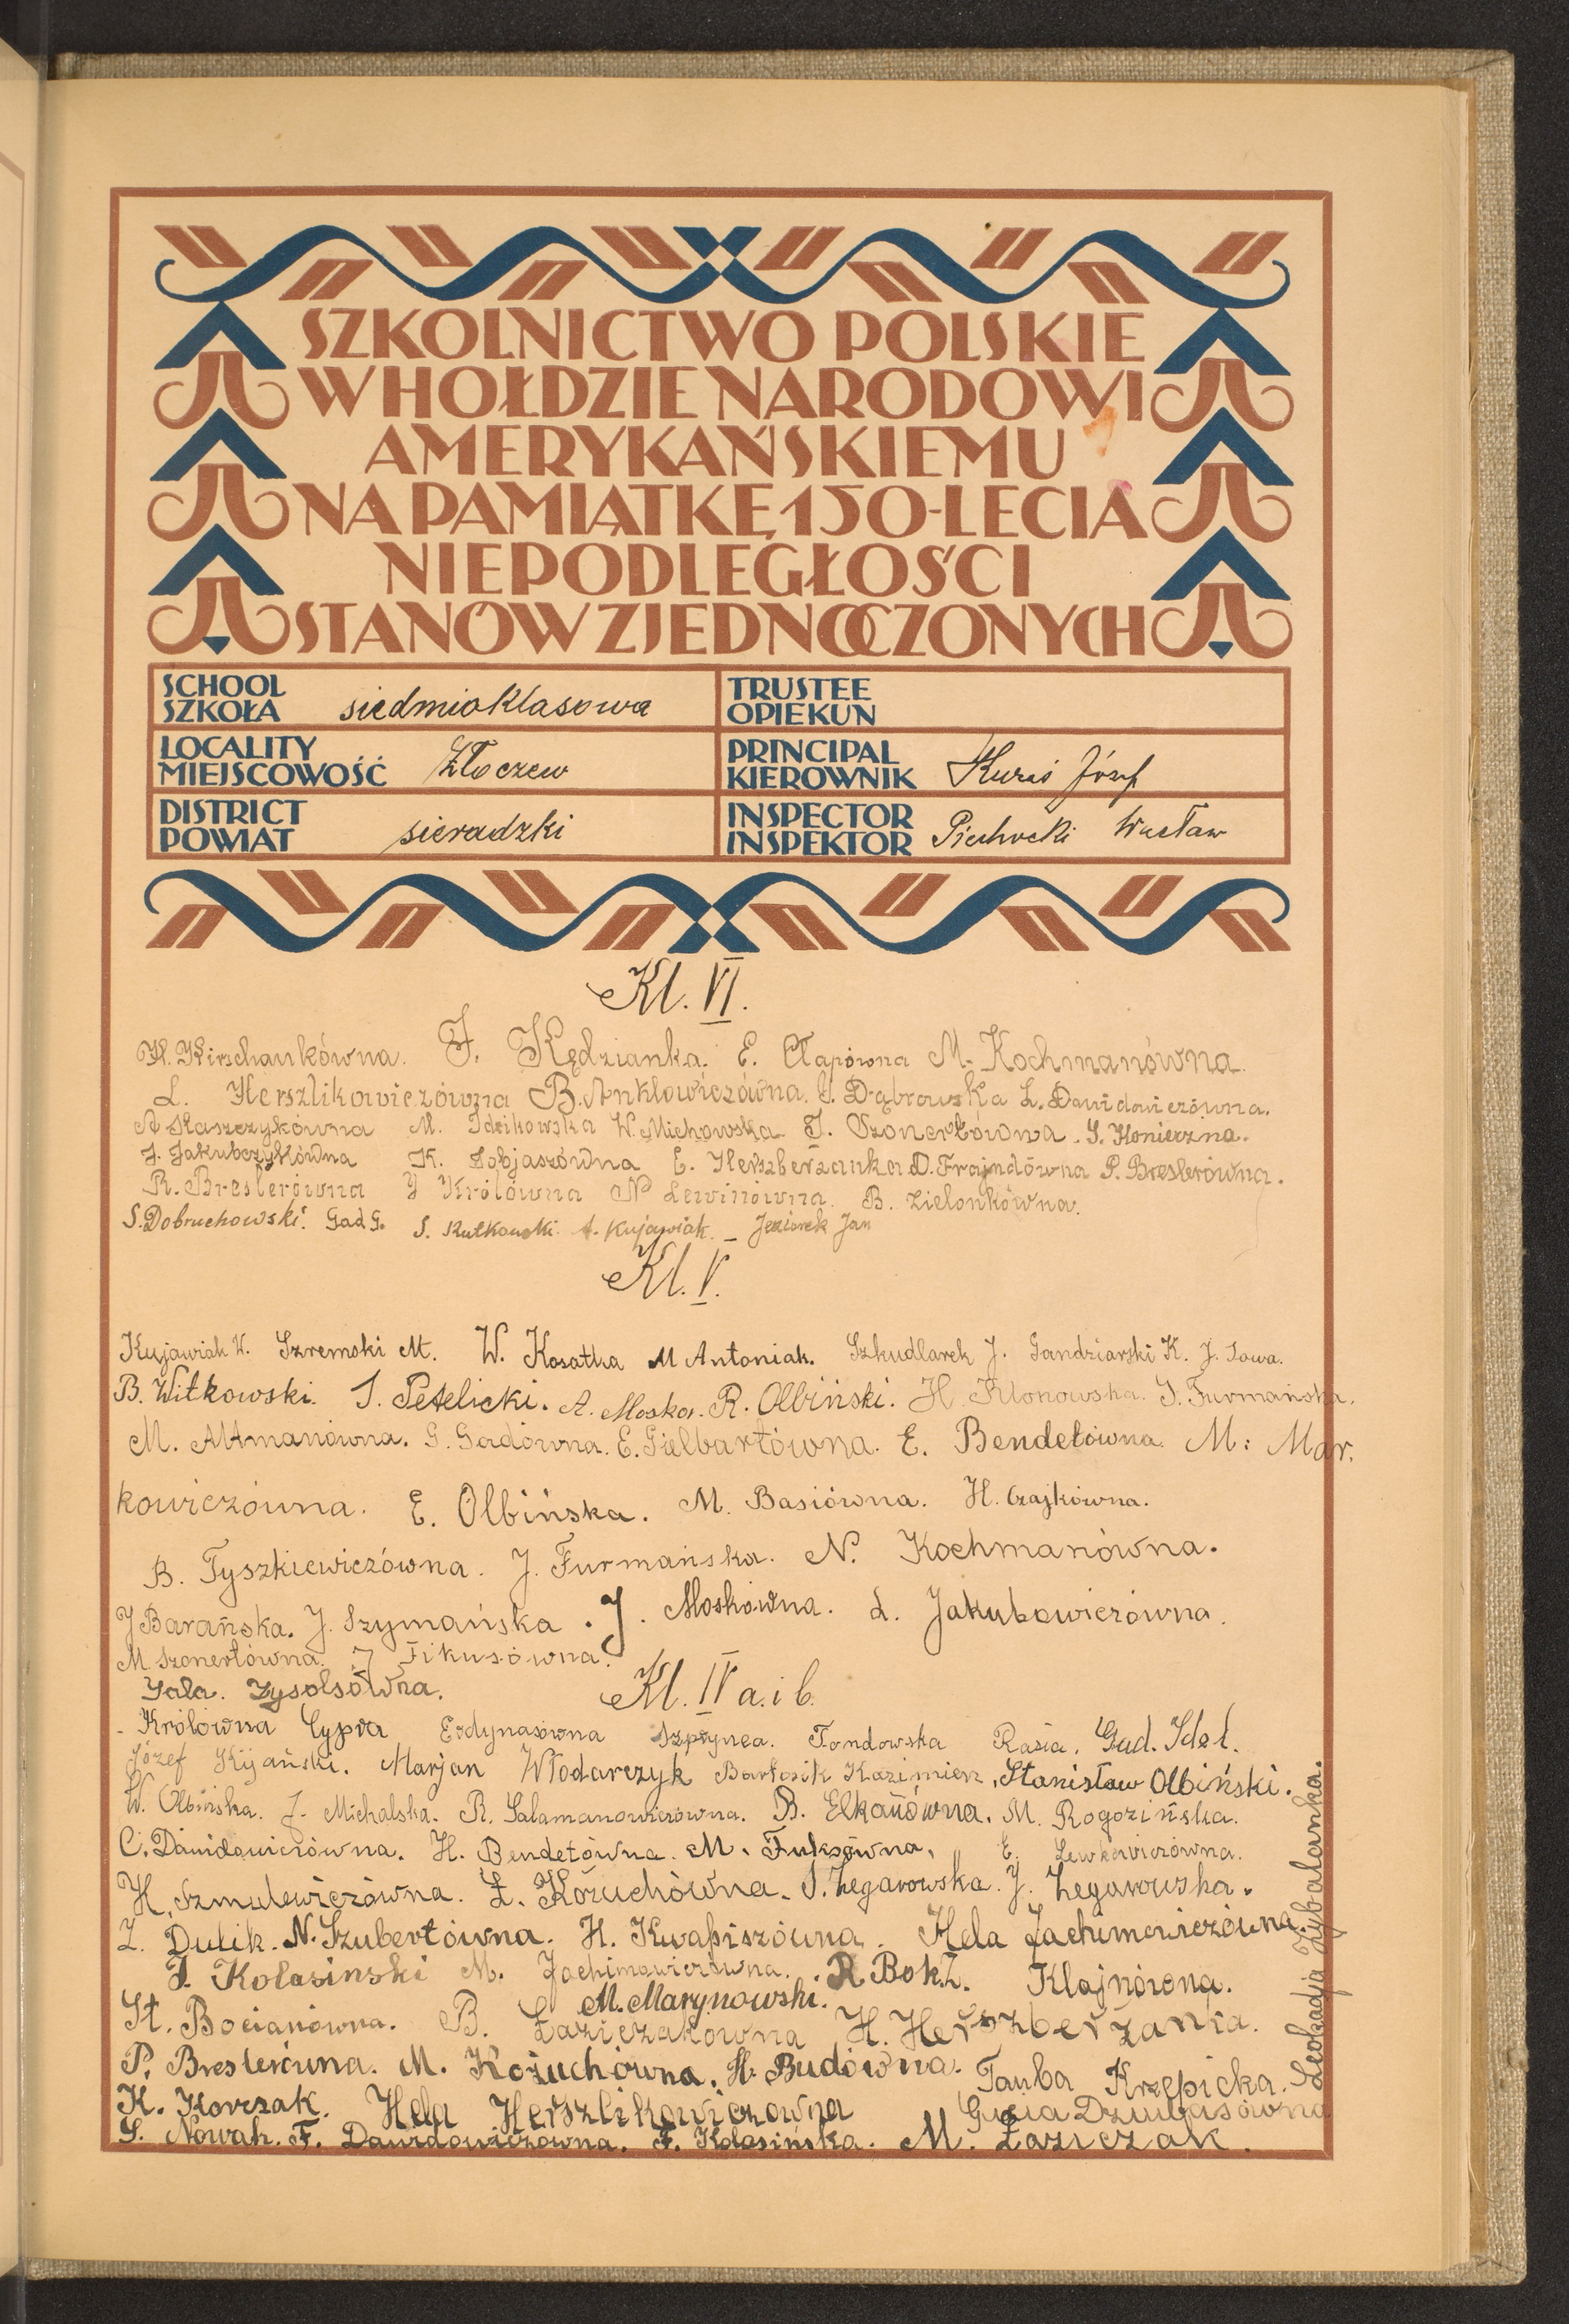 SZKOLNICTWO POLSKIE
W HOŁDZIE NARODOWI
AMERYKAŃSKIEMU
NA PAMIĄTKĘ 150-LECIA
NIEPODLEGŁOŚCI
STANÓW ZJEDNOCZONYCH
SCHOOL
SZKOŁA siedmioklasowa
TRUSTEE
OPIEKUN
LOCALITY
MIEJSCOWOŚĆ Złoczew
PRINCIPAL
KIEROWNIK Kuraś Józef
DISTRICT
POWIAT sieradzki
INSPECTOR
INSPEKTOR Piechocki Wacław
Kl. VI.
H. Kirschankówna. F. Kędzianka. E. Cłapówna M. Kochmanówna.
L. Herszlikowiczówna B. Anklowiczówna. G. Dąbrowska L. Dawidowiczówna.
A Kaszczykówna M. Idzikowska W. Michowska. T. Szonertówna. S. Konieczna.
J. Jakubczykówna K. Sobjaszówna E. Herszberżanka D. Frajndówna P. Breslerówna.
R. Breslerówna J Królówna N Lewinówna. B. Zielonkówna.
S. Dobruchowski. Gad G. S. Rutkowski. A. Kujawiak. _ Jeziorek Jan
Kl. V.
Kujawiak W. Szremski M. W. Kosatka M Antoniak. Szkudlarek J. Gandziarski K. J. Sowa.
B. Witkowski. J. Petelicki. A. Moska. R. Olbiński. H. Klonowska. J. Furmańska.
M. Altmanówna. G. Gadówna. E. Gielbartówna. E. Bendetówna. M: Mar.
kowiczówna. E. Olbińska. M. Basiówna. H. Czajkówna.
B. Tyszkiewiczówna. J. Furmańska. N. Kochmanówna.
J Barańska. J. Szymańska. J. Moskówna. L. Jakubowiczówna.
M. Szonertówna. J Fikusówna.
Gala. Zysolsówna.
Kl. IV a. i b.
- Królówna Cypra Erdynasówna Szprynca. Tondowska Rasia. Gud. Idel.
Józef Kijański. Marjan Włodarczyk Bartosik Kazimierz. Stanisław Olbiński.
W. Olbińska. J. Michalska. R. Salamanowiczówna. B. Elkanówna. M. Rogozińska.
C. Dawidowiczówna. H. Bendetówna. M. Fuksówna, E. Lewkowiczówna.
H. Szmulewiczówna. Ł. Kożuchówna. S. Zegarowska. J. Zegarowska.
Z. Dulik. N. Szubertówna. H. Kwapiszówna. Hela Jachimowiczówna.
J. Kolasinski M. Jachimowiczówna. R Bok. Z. Klajnówna.
M. Marynowski.
St. Bocianówna. B. Łaziczakówna H. Herszberżanka.
P. Breslerówna. M. Kożuchówna. H. Budówna. Tauba Krzepicka.
K. Korczak. Hela Herszlikowiczowna Gucia Dziubasówna
S. Nowak. F. Dawidowiczówna. F. Kolasińska. M. Łaziczak.
Leokadja Zybalanka.